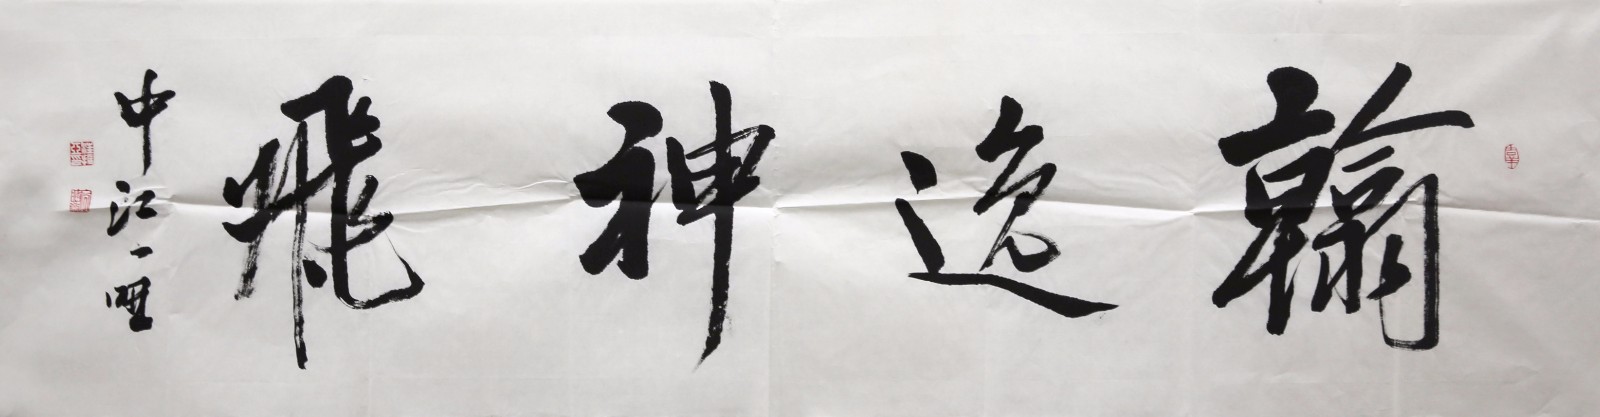 翰逸神飛
中江一